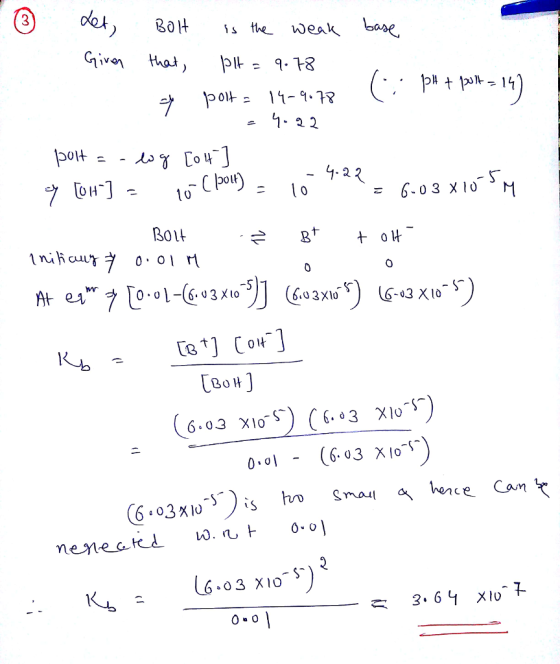 ③ Let, BOH is the weak base
Given that, pH = 9.78
⇒ pOH = 14-9.78 (∵ pH + pOH = 14)
= 4.22
pOH = - log [OH⁻]
⇒ [OH⁻] = 10^-(pOH) = 10^-4.22 = 6.03 X 10^-5 M
BOH ⇌ B⁺ + OH⁻
Initially ⇒ 0.01 M 0 0
At eqᵐ ⇒ [0.01-(6.03x10^-5)] (6.03x10^-5) (6.03 X10^-5)
K_b = [B⁺] [OH⁻] / [BOH]
= (6.03 X10^-5) (6.03 X10^-5) / 0.01 - (6.03 X10^-5)
(6.03X10^-5) is too small & hence can be
neglected w.r.t 0.01
∴ K_b = (6.03 X10^-5)² / 0.01 = 3.64 X10^-7